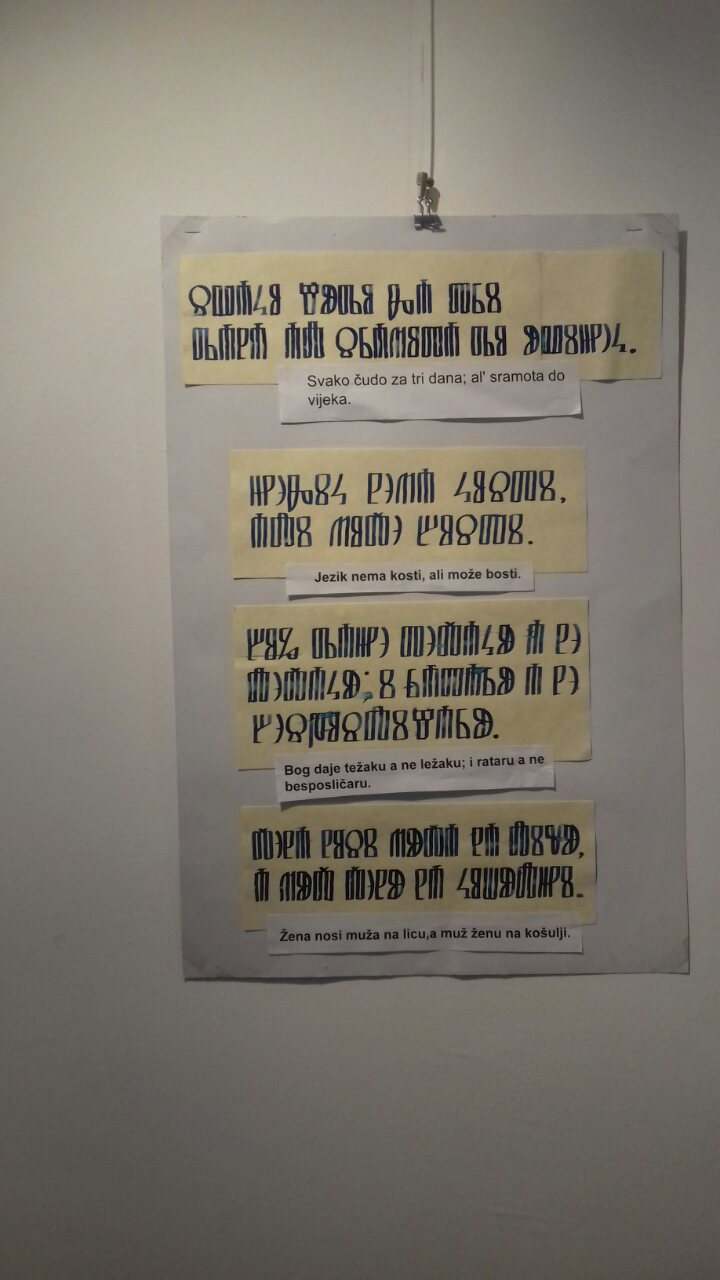 ⱄⰲⰰⰽⱁ ⱍⱆⰴⱁ ⰸⰰ ⱅⱃⰹ
ⰴⰰⱀⰰ ⰰⰾ ⱄⱃⰰⰿⱁⱅⰰ ⰴⱁ ⱆⰲⰹⰼⰵⰽ.
Svako čudo za tri dana; al' sramota do
vijeka.
ⰼⰵⰸⰹⰽ ⱀⰵⰿⰰ ⰽⱁⱄⱅⰹ,
ⰰⰾⰹ ⰿⱁⰶⰵ ⰱⱁⱄⱅⰹ.
Jezik nema kosti, ali može bosti.
ⰱⱁⰳ ⰴⰰⰼⰵ ⱅⰵⰶⰰⰽⱆ ⰰ ⱀⰵ
ⰾⰵⰶⰰⰽⱆ; ⰹ ⱃⰰⱅⰰⱃⱆ ⰰ ⱀⰵ
ⰱⰵⱄⱂⱁⱄⰾⰹⱍⰰⱃⱆ.
Bog daje težaku a ne ležaku; i rataru a ne
besposličaru.
ⰶⰵⱀⰰ ⱀⱁⱄⰹ ⰿⱆⰶⰰ ⱀⰰ ⰾⰹⱌⱆ,
ⰰ ⰿⱆⰶ ⰶⰵⱀⱆ ⱀⰰ ⰽⱁⱎⱆⰾⰼⰹ.
Žena nosi muža na licu,a muž ženu na košulji.